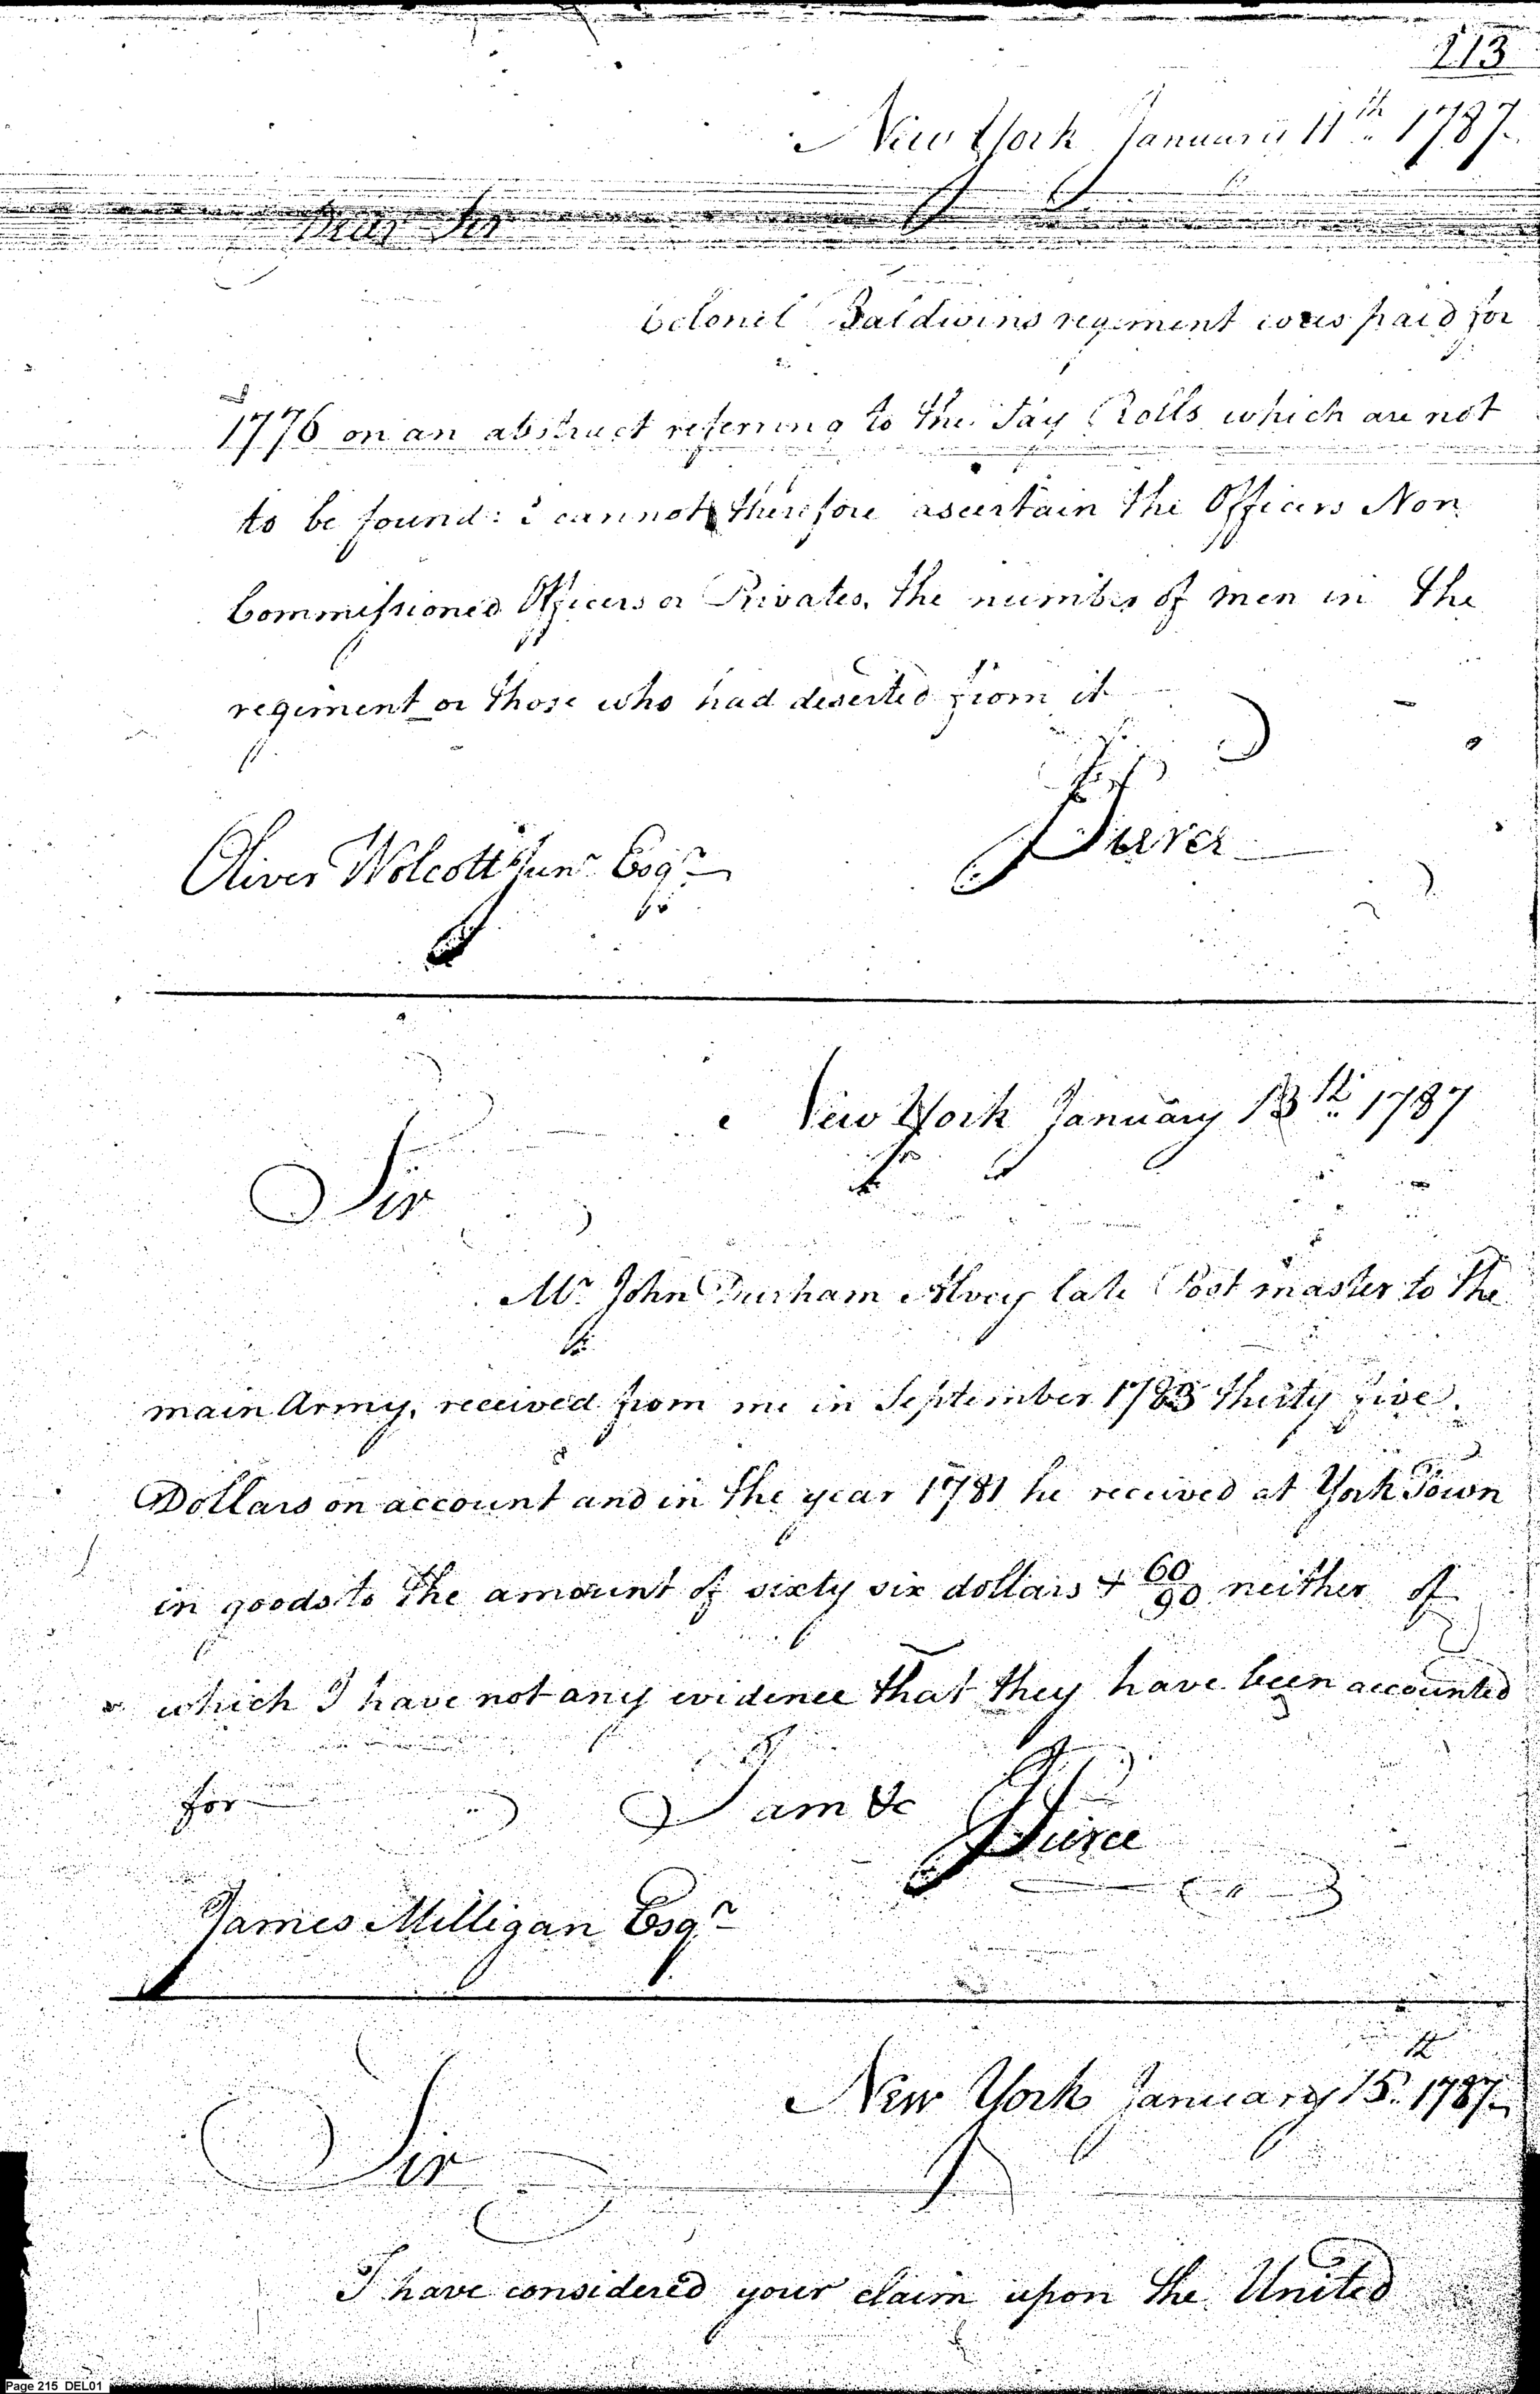 213
New York January 11th 1787
Dear Sir
Colonel Baldwins regiment was paid for
1776 on an abstract referring to the Pay Rolls which are not
to be found: I cannot therefore ascertain the Officers Non
Commissioned Officers or Privates, the number of men in the
regiment or those who had deserted from it
Pierce
Oliver Wolcott Junr Esqr
New York January 13th 1787
Sir
Mr John Durham Alvey late Post master to the
main Army, received from me in September 1783 thirty five
Dollars on account and in the year 1781 he received at York Town
in goods to the amount of sixty six dollars & 60/90 neither of
which I have not any evidence that they have been accounted
for I am &c
Pierce
James Milligan Esqr
New York January 15th 1787
Sir
I have considered your claim upon the United
Page 215 DEL01